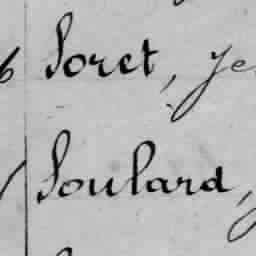 6 Soret, Je
Soulard,